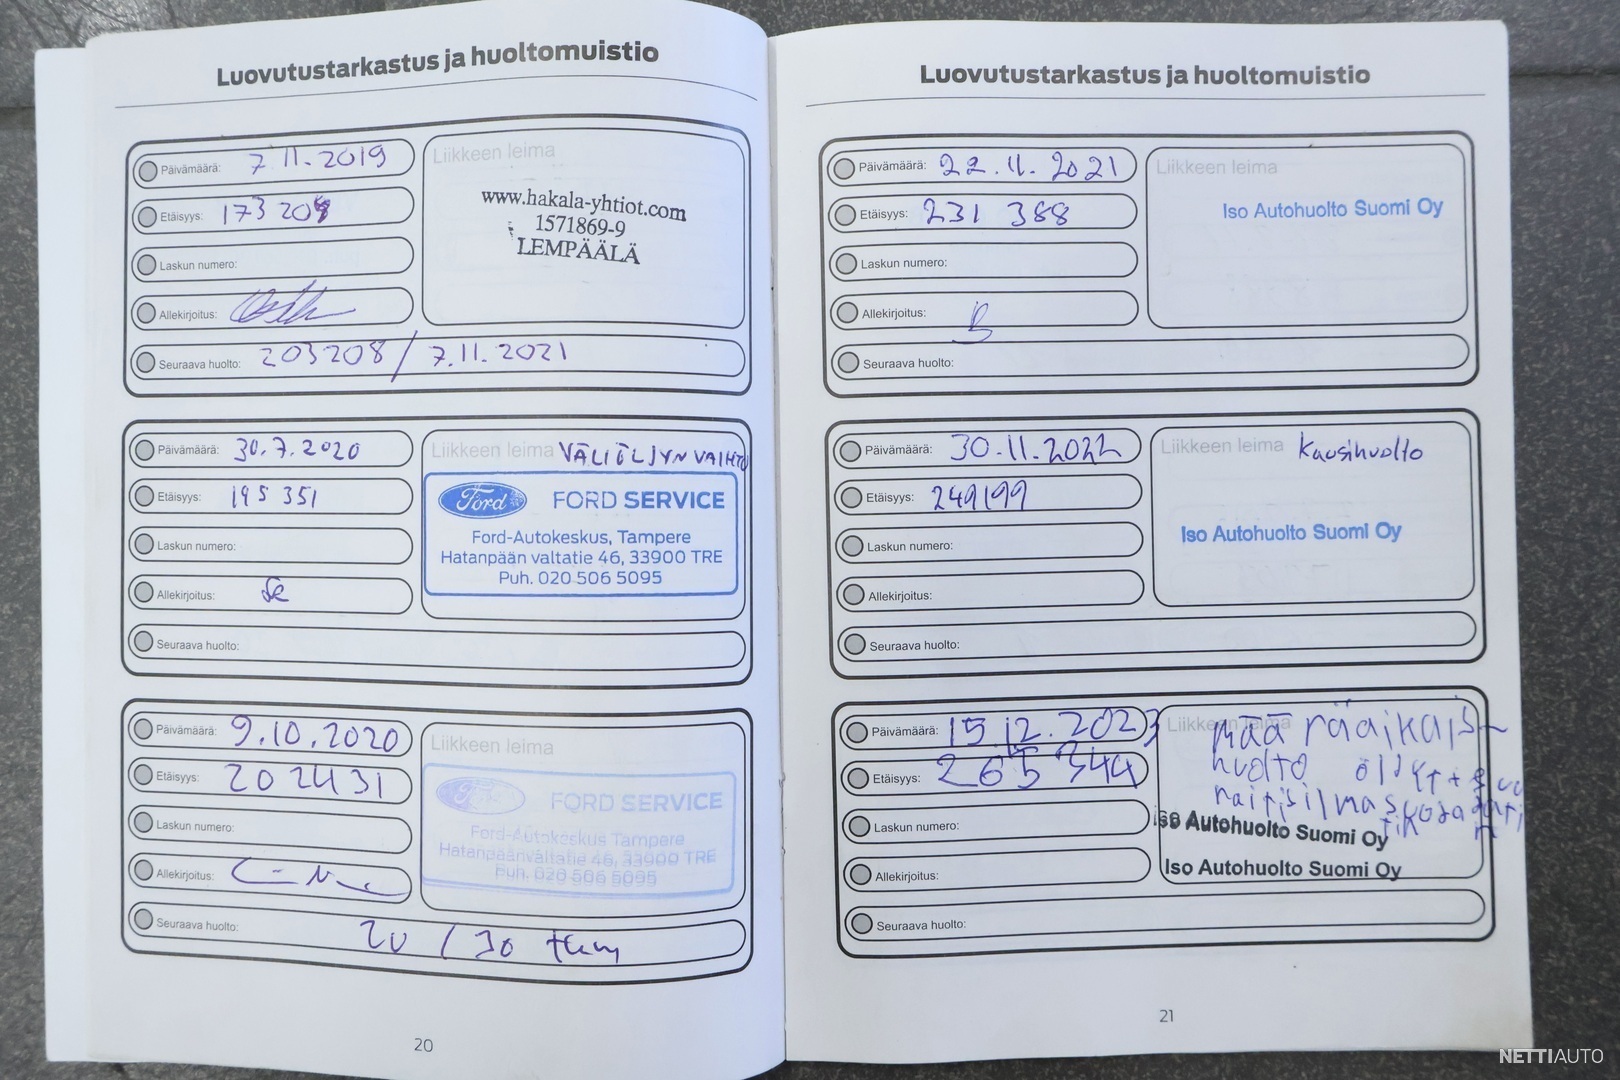 Luovutustarkastus ja huoltomuistio
Päivämäärä: 7.11.2019
Liikkeen leima
www.hakala-yhtiot.com
1571869-9
LEMPÄÄLÄ
Etäisyys: 173 208
Laskun numero:
Allekirjoitus:
Seuraava huolto: 203208 / 7.11.2021
Päivämäärä: 30.7.2020
Liikkeen leima VÄLIÖLJYNVAIHTO
Ford FORD SERVICE
Ford-Autokeskus, Tampere
Hatanpään valtatie 46, 33900 TRE
Puh. 020 506 5095
Etäisyys: 195 351
Laskun numero:
Allekirjoitus:
Seuraava huolto:
Päivämäärä: 9.10.2020
Liikkeen leima
Ford FORD SERVICE
Ford-Autokeskus Tampere
Hatanpäänvaltatie 46, 33900 TRE
Puh. 020 506 5095
Etäisyys: 202431
Laskun numero:
Allekirjoitus:
Seuraava huolto: 20 / 30 tkm
20
Luovutustarkastus ja huoltomuistio
Päivämäärä: 22.11.2021
Liikkeen leima
Iso Autohuolto Suomi Oy
Etäisyys: 231 388
Laskun numero:
Allekirjoitus:
Seuraava huolto:
Päivämäärä: 30.11.2022
Liikkeen leima Kausihuolto
Iso Autohuolto Suomi Oy
Etäisyys: 249199
Laskun numero:
Allekirjoitus:
Seuraava huolto:
Päivämäärä: 15.12.2023
Liikkeen leima
määräaikais-
huolto öljyt +
raitisilmasuodatin
Iso Autohuolto Suomi Oy
Iso Autohuolto Suomi Oy
Etäisyys: 265 344
Laskun numero:
Allekirjoitus:
Seuraava huolto:
21
NETTIAUTO